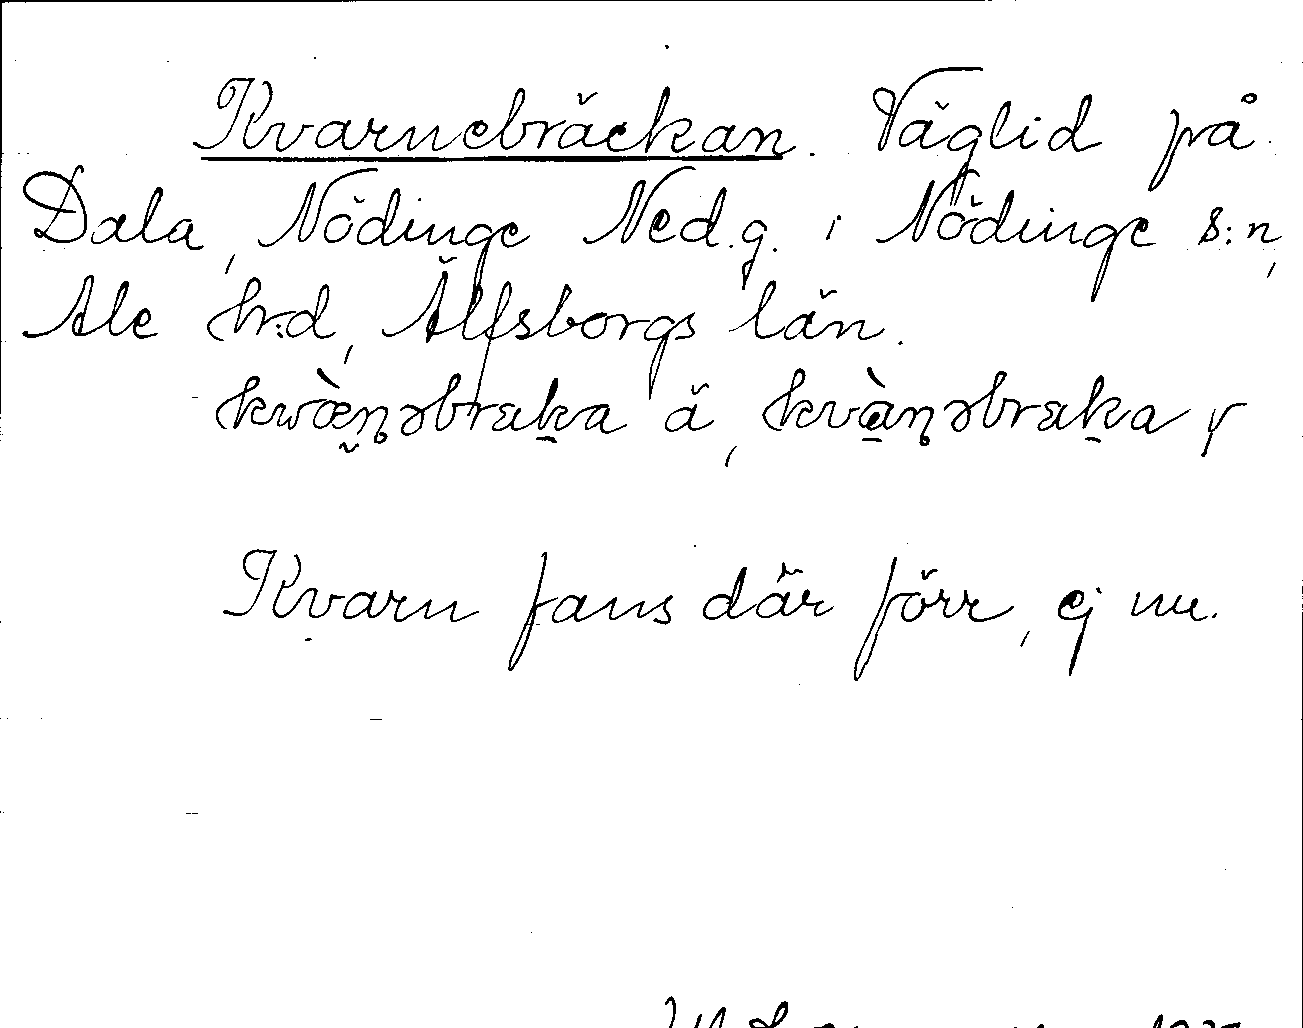 Kvarnebräckan. Väglid på
Dala, Nödinge Ned.g. i Nödinge s:n,
Ale h:d, Älfsborgs län.
kwæ̀ɳəbrɛka ä, kvàɳəbrɛka y
Kvarn fans där förr, ej nu.